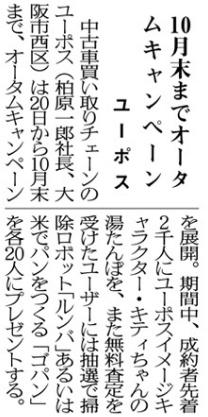 10月末までオータ
ムキャンペーン
ユーポス
中古車買い取りチェーンの
ユーポス(柏原一郎社長、大
阪市西区)は20日から10月末
まで、オータムキャンペーン
を展開。期間中、成約者先着
2千人にユーポスイメージキ
ャラクター・キティちゃんの
湯たんぽを、また無料査定を
受けたユーザーには抽選で掃
除ロボット「ルンバ」あるいは
米でパンをつくる「ゴパン」
を各20人にプレゼントする。